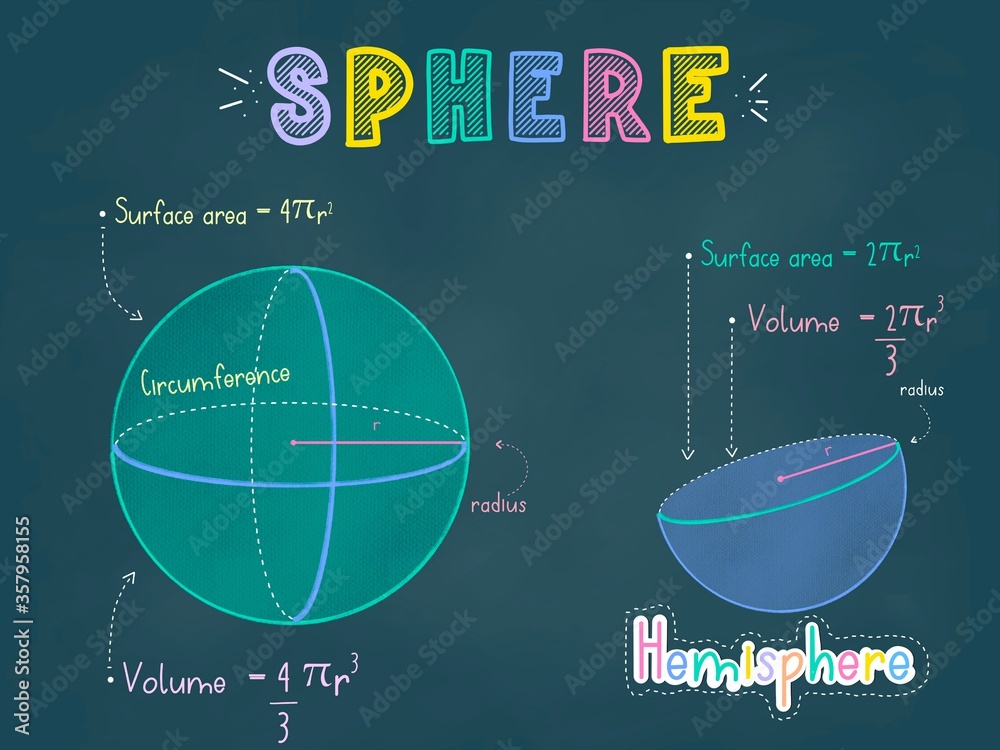 SPHERE
Surface area = 4πr²
Circumference
r
radius
Volume = 4/3 πr³
Surface area = 2πr²
Volume = 2πr³/3
radius
r
Hemisphere
Adobe Stock | #357958155
Adobe Stock